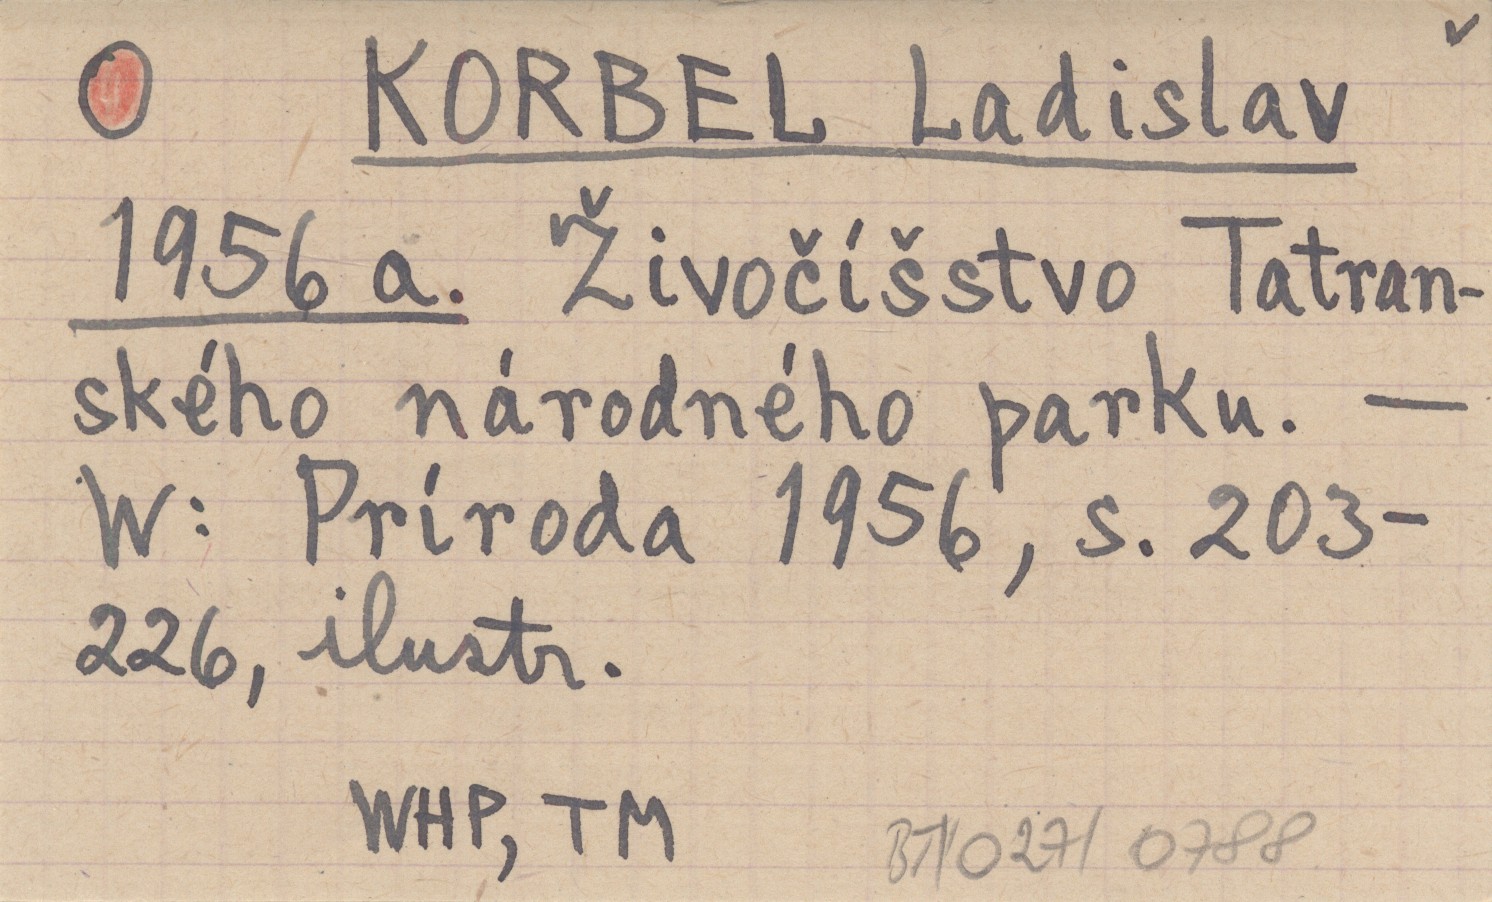 O KORBEL Ladislav
1956 a. Živočíšstvo Tatran-
ského národného parku. —
W: Príroda 1956, s. 203-
226, ilustr.
WHP, TM
BT/027/ 0788